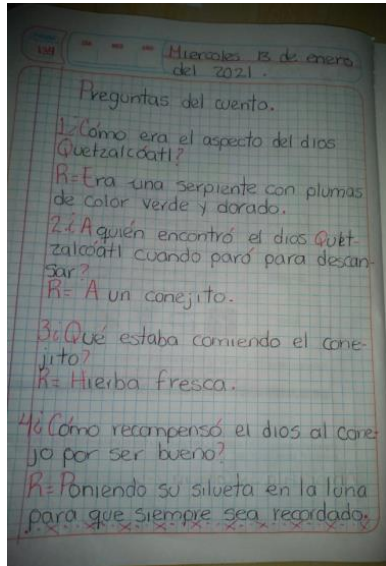 Miercoles 13 de enero
del 2021.
Preguntas del cuento.
1¿Cómo era el aspecto del dios
Quetzalcóatl?
R=Era una serpiente con plumas
de color verde y dorado.
2¿A quién encontró el dios Quet-
zalcóatl cuando paró para descan-
sar?
R= A un conejito.
3¿Qué estaba comiendo el cone-
jito?
R= Hierba fresca.
4¿Cómo recompensó el dios al cone-
jo por ser bueno?
R=Poniendo su silueta en la luna
para que siempre sea recordado.